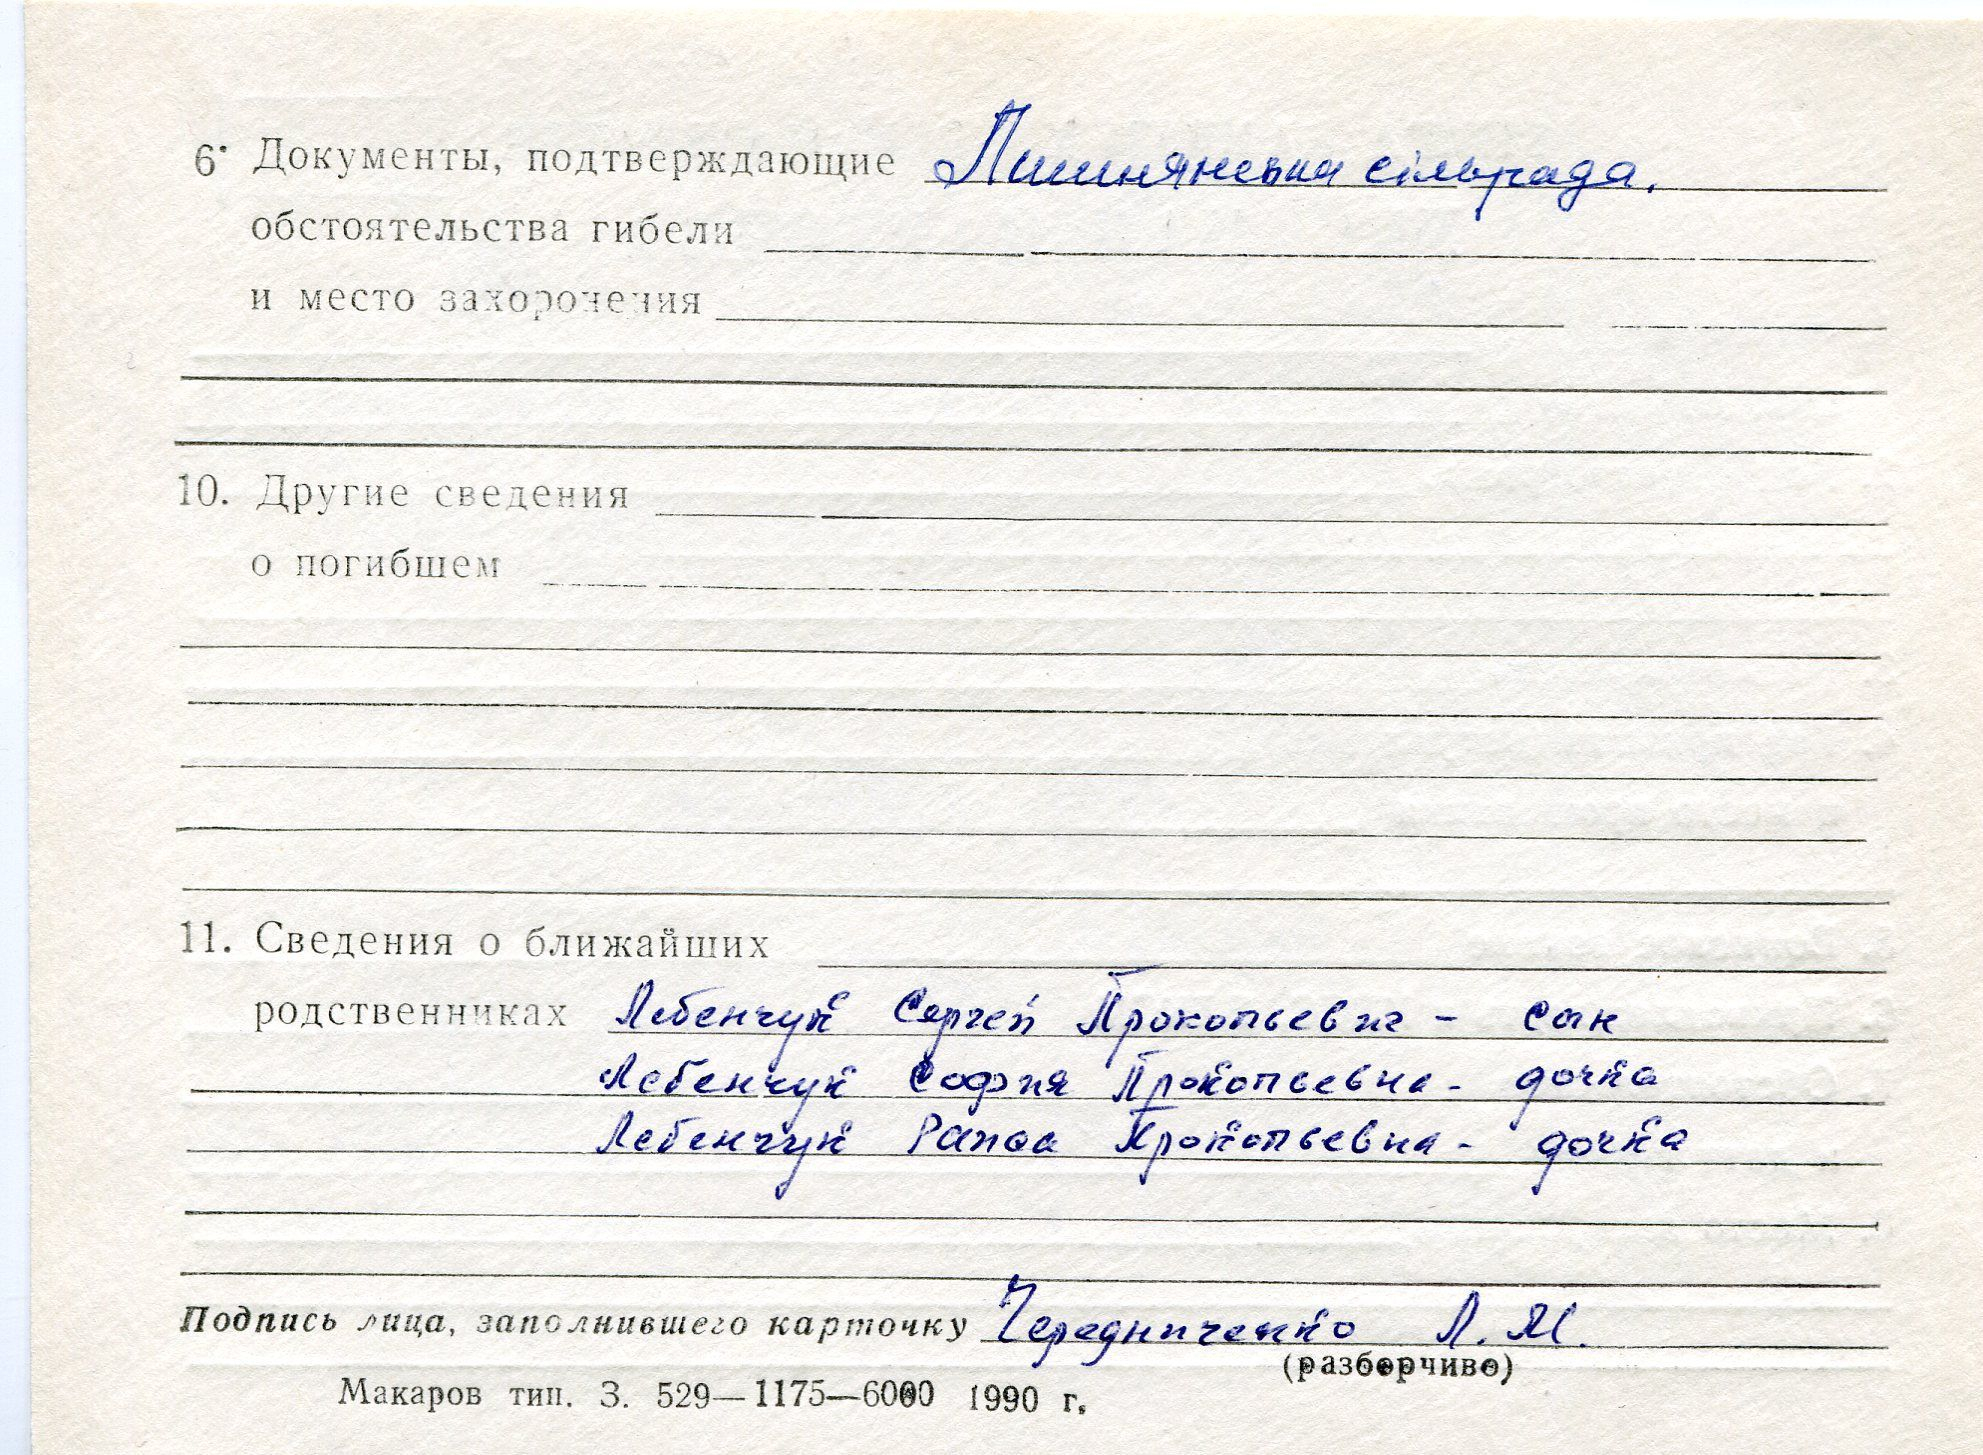 6. Документы, подтверждающие Пишнянська сільрада.
обстоятельства гибели
и место захоронения
10. Другие сведения
о погибшем
11. Сведения о ближайших
родственниках Лебенчук Сергей Прокопьевич - сын
Лебенчук София Прокопьевна - дочка
Лебенчук Раиса Прокопьевна - дочка
Подпись лица, заполнившего карточку Чередниченко Л. М.
(разборчиво)
Макаров тип. З. 529—1175—6000 1990 г.